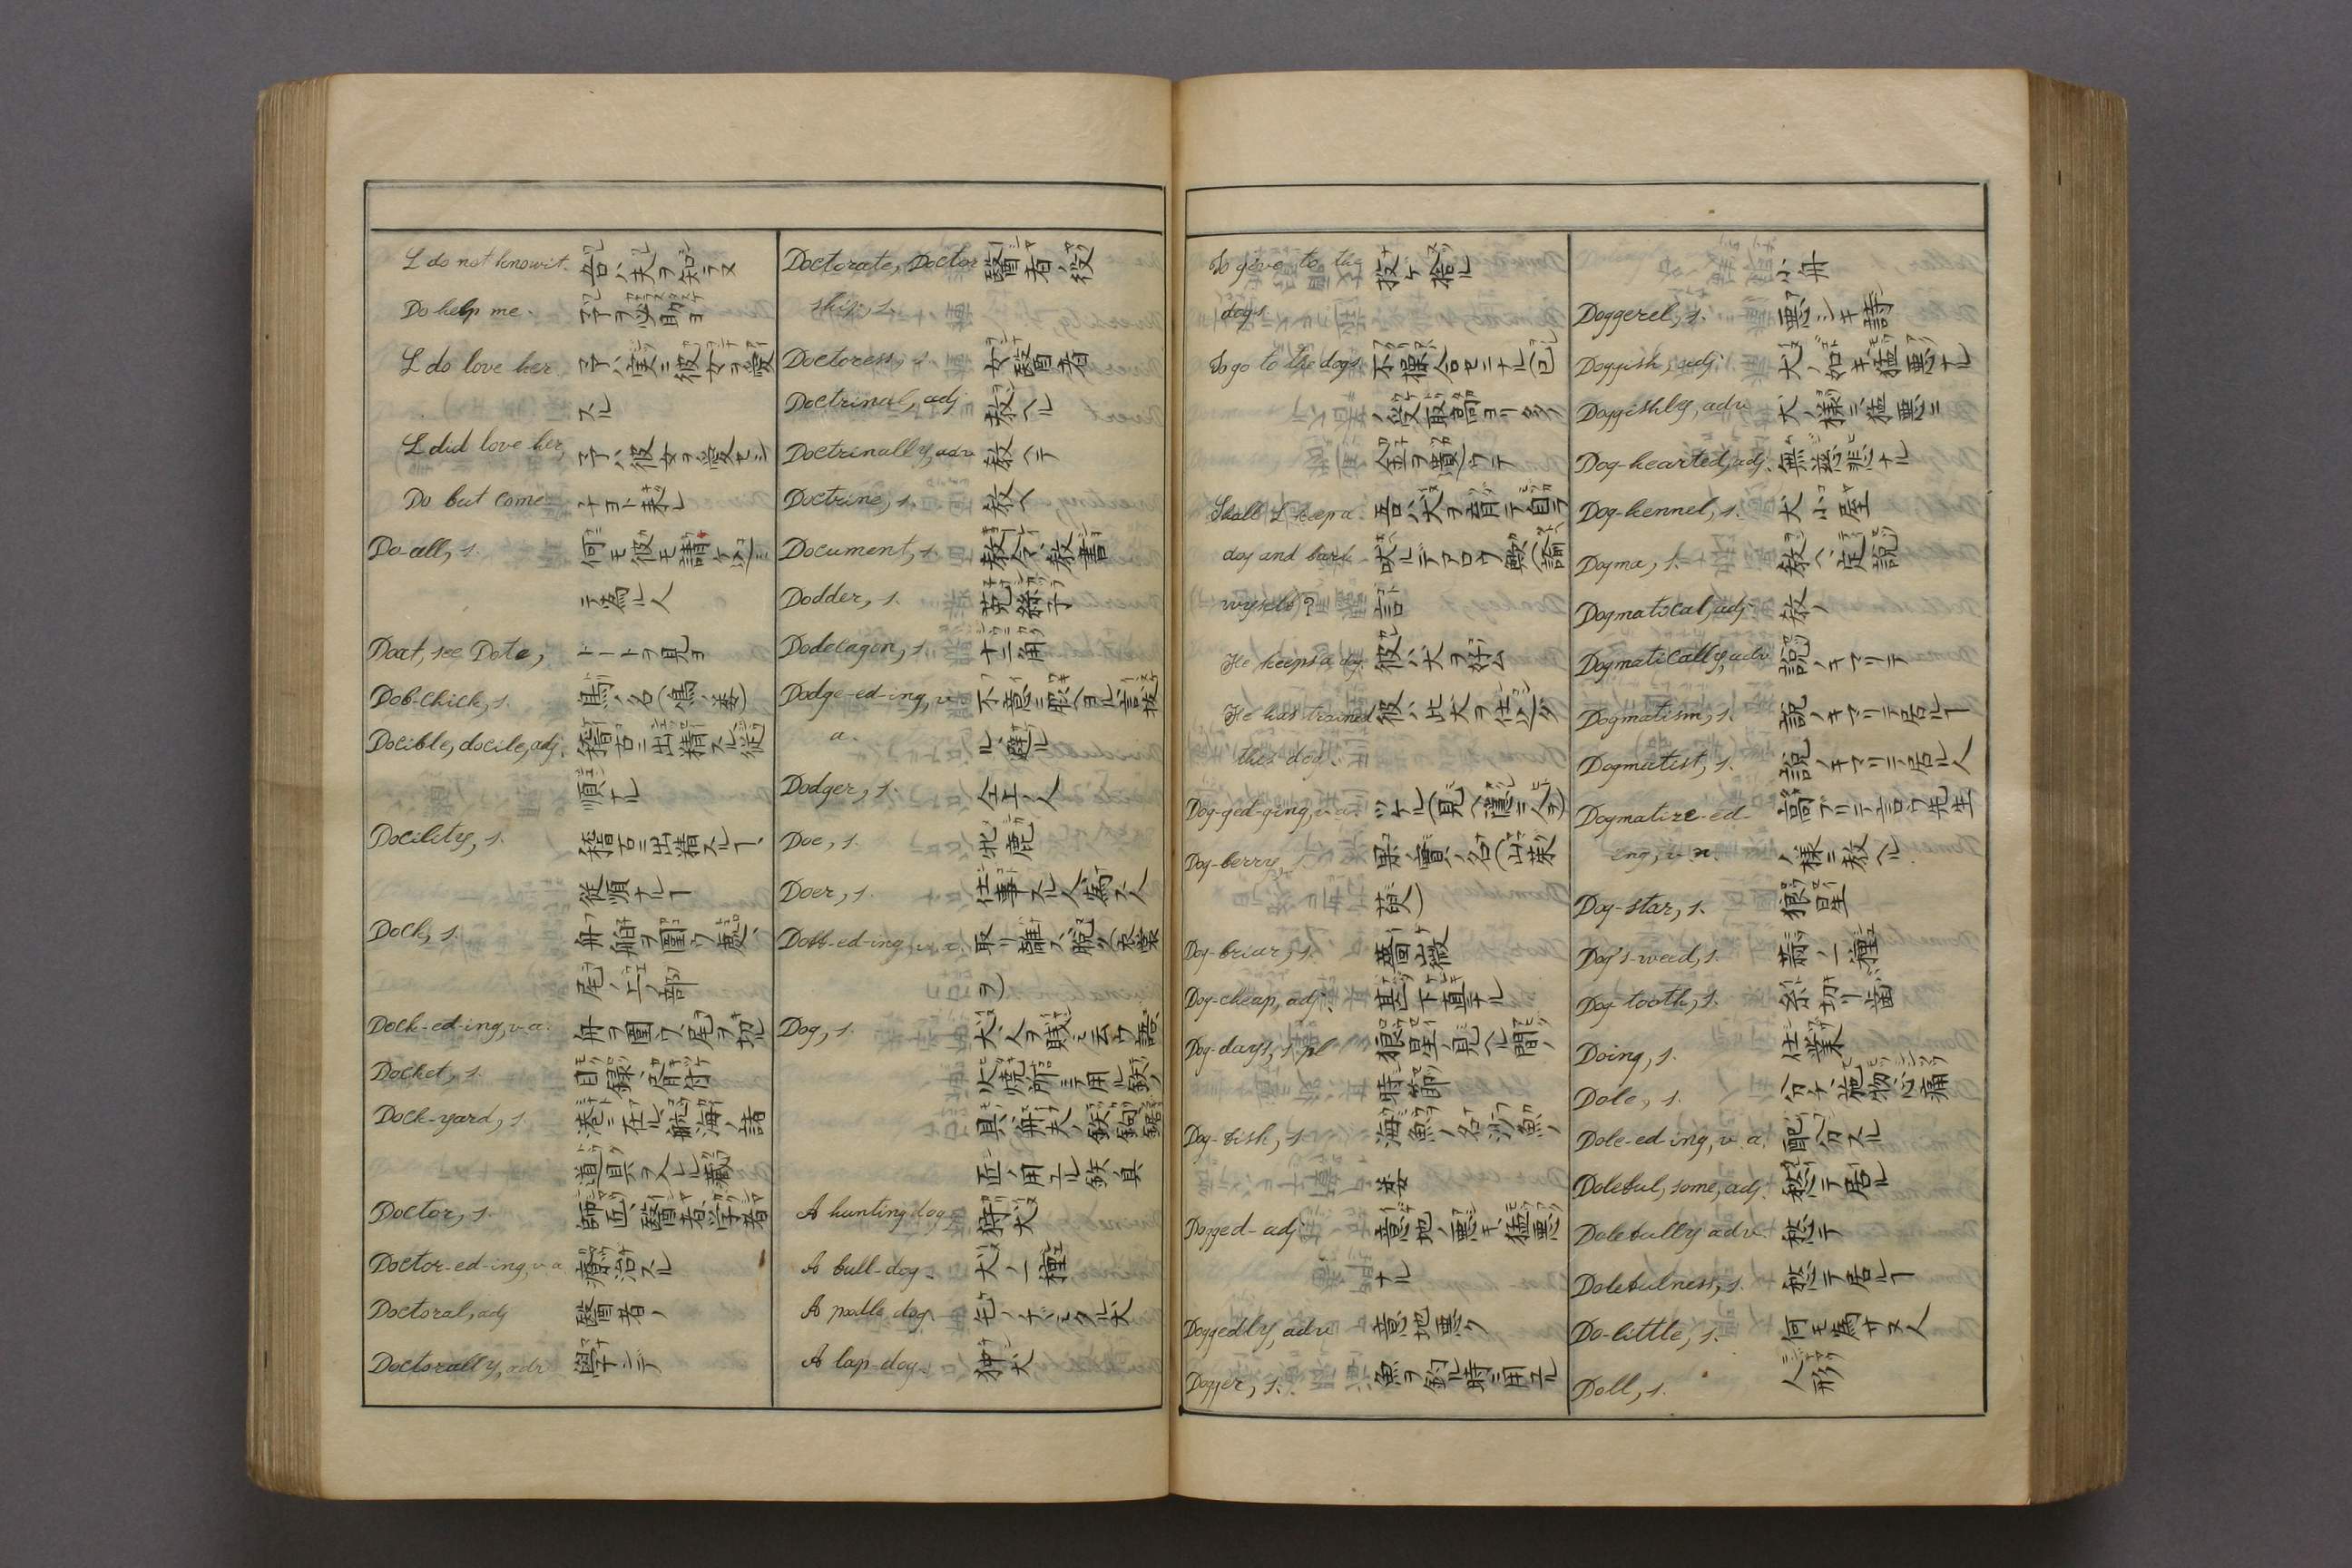 I do not know it. 吾ハ夫ヲ知ラヌ
Do help me. 予ヲ必助ヨ
I do love her 予ハ実ニ彼女ヲ愛
スル
I did love her, 予ハ彼女ヲ愛セシ
Do but come チヨト来レ
Do-all, s. 何モ彼モ請ケ込ミ
テ為ル人
Doat, see Dote, ドートヲ見ヨ
Dob-chick, s. 鳥ノ名
Docible, docile, adj. 稽古ニ出精スル従
順ナル
Docility, s. 稽古ニ出精スルヿ、
従順ナルヿ
Dock, s. 舟船ヲ圍ウ處、
尾ノ上ノ部
Dock-ed-ing, v. a. 舟ヲ圍ウ、尾ヲ切ル
Docket, s. 目録、肩付
Dock-yard, s. 港ニ在ル航海ノ諸
道具ヲ入ルル蔵
Doctor, s. 師匠、醫者、学者
Doctor-ed-ing, v. a. 療治スル
Doctoral, adj 醫者ノ
Doctorally, adv 学ンデ
Doctorate, Doctor 醫者ノ役
ship, s.
Doctoress, s. 女醫者
Doctrinal, adj. 教ヘル
Doctrinally, adv 教ヘテ
Doctrine, s. 教ヘ
Document, s. 教令、教書
Dodder, s. 菟絲子
Dodecagon, s. 十二角
Dodge-ed-ing, v. 不意ニ取合ル、言抜
a. ル、避ル
Dodger, s. 仝上ノ人
Doe, s. 牝鹿
Doer, s. 仕事スル人、為ス人
Doff-ed-ing, v. a. 取リ離ス、脱グ(衣裳
ヲ)
Dog, s. 犬、人ヲ賎シミ云フ語、
火焼所ニテ用ル鉄ノ
具、舟夫ノ鉄鉤、鋸
匠ノ用ユル鉄具
A hunting dog 狩犬
A bull-dog. 犬ノ一種
A poddle dog. 毛ノチヾミタル犬
A lap-dog. 狆犬
To give to the 投ケ捨ル
dogs
To go to the dogs. 不揉合セニナル(己
ノ受取高ヨリ多ク
金ヲ費ヤウテ
Shall I keep a 吾ハ犬ヲ育テ自ラ
dog and bark 吠ルデアロウ歟(諭
myself? 言
He keeps a dog. 彼ハ犬ヲ好ム
He has trained 彼ハ此犬ヲ仕込ダ
this dog.
Dog-ged-ging, v. a. ツケル(見ヘ隠ニ人ヲ)
Dog-berry, s. 果實ノ名(山茱
萸)
Dog-briar, s. 薔薇
Dog-cheap, adj. 甚タ下直ナル
Dog-days, s. pl 狼星ノ見ヘル間ノ
時節
Dog-fish, s. 海魚ノ名、沙魚ノ
类
Dogged-adj 意地ノ悪キ、猛悪
ナル
Doggedly, adv 意地悪ク
Dogger, s. 魚ヲ釣ル時ニ用ユル
小舟
Doggerel, s. 悪シキ詩
Doggish, adj. 犬ノ如キ、猛悪ナル
Doggishly, adv 犬ノ様ニ、猛悪ニ
Dog-hearted, adj. 無慈悲ナル
Dog-kennel, s. 犬小屋
Dogma, s. 教ヘ、定説
Dogmatical, adj. 教ノ
Dogmatically, adv. 説ノキマリテ
Dogmatism, s. 説ノキマリテ居ルヿ
Dogmatist, s. 説ノキマリテ居ル人
Dogmatize-ed- 高ブリテ言ウ、先生
ing, v. n. ノ様ニ教ヘル
Dog-star, s. 狼星
Dog's-weed, s. 一種
Dog-tooth, s. 糸切リ歯
Doing, s. 仕業
Dole, s. 分ケ、施物、心痛
Dole-ed-ing, v. a. 配分スル
Doleful, some, adj. 愁テ居ル
Dolefully adv. 愁テ
Dolefulness, s. 愁テ居ルヿ
Do-little, s. 何モ為サヌ人
Doll, s. 人形